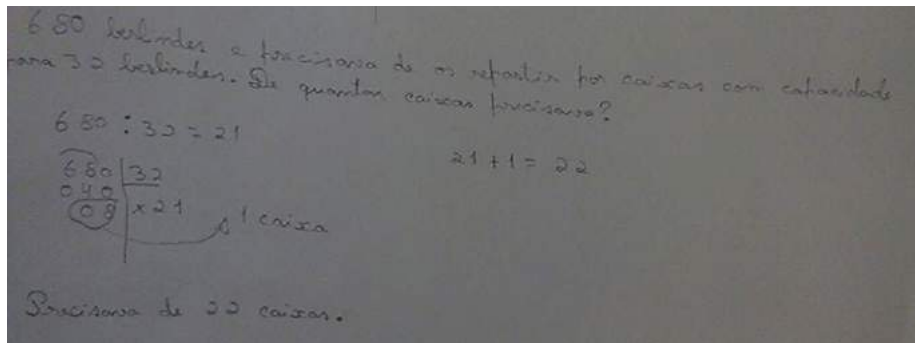 680 berlindes e precisava de os repartir por caixas com capacidade
para 32 berlindes. De quantas caixas precisava?
680 : 32 = 21
21 + 1 = 22
680 | 32
040
08 | x 21
1 caixa
Precisava de 22 caixas.